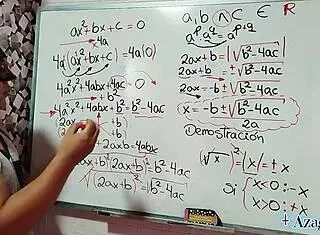 ax²+bx+c = 0
x4a
4a(ax²+bx+c) = 4a(0)
4a²x²+4abx+4ac = 0
+b²
4a²x²+4abx+b² = b²-4ac
(2ax +b)
(2ax +b)
+2axb=4abx
(2ax+b)(2ax+b)=b²-4ac
√(2ax+b)² = √b²-4ac
a, b ∧ c ∈ R
aᵖ aᵠ = aᵖ⁺ᵠ
2ax+b = |√b²-4ac|
2ax+b = ±√b²-4ac
2ax = -b ± √b²-4ac
x = -b ± √b²-4ac
2a
Demostración
(√x)² = |x| = ± x
Si { x<0 : -x
x>0 : +x
+ Azag